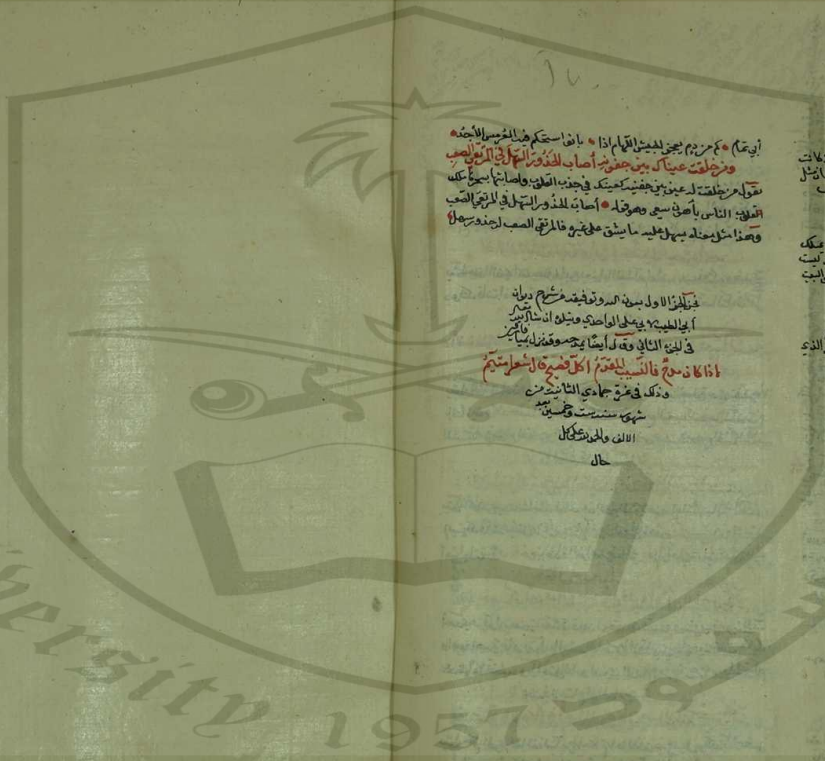 أبي تمام • كم من دم يعجز الجيش اللهام اذا • بانوا ستحكم فيه العرمس الأجد •
ومن خلقت عيناك بين جفونه • أصاب الحدور السهل في المرتقى الصعب
يقول من خلقت له عين بين جفنيه كعينك في جذب القلوب واصابتها بسحرها ملك
القلوب الناس بأهون سعي وهو قوله • أصاب الحدور السهل في المرتقى الصعب
وهذا مثل معناه يسهل عليه ما يشق على غيره فالمرتقى الصعب له حدور سهل
نجز الجزء الاول بعون الله وتوفيقه من شرح ديوان
أبي الطيب لابي علي الواحدي ويتلوه ان شاء الله تعالى
في الجزء الثاني وقال أيضا يمدحه وقد نزل بميافارقين
اذا كان مدح فالنسيب المقدم اكل فصيح قال شعرا متيم
وذلك في غرة جمادي الثانيه من
شهور سنة ست وخمسين بعد
الالف والحمد لله على كل
حال
versity 1957
سعود